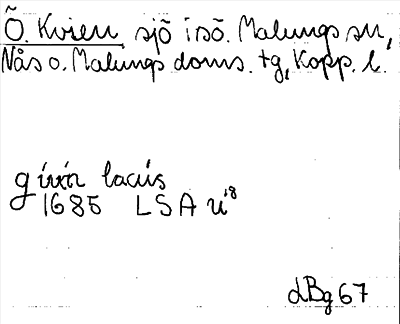 Õ. Kvien sjö i sö. Malungs sn,
Nås o. Malungs doms. tg, Kopp. l.
lacus
1685 LSA u¹⁸
dBg 67